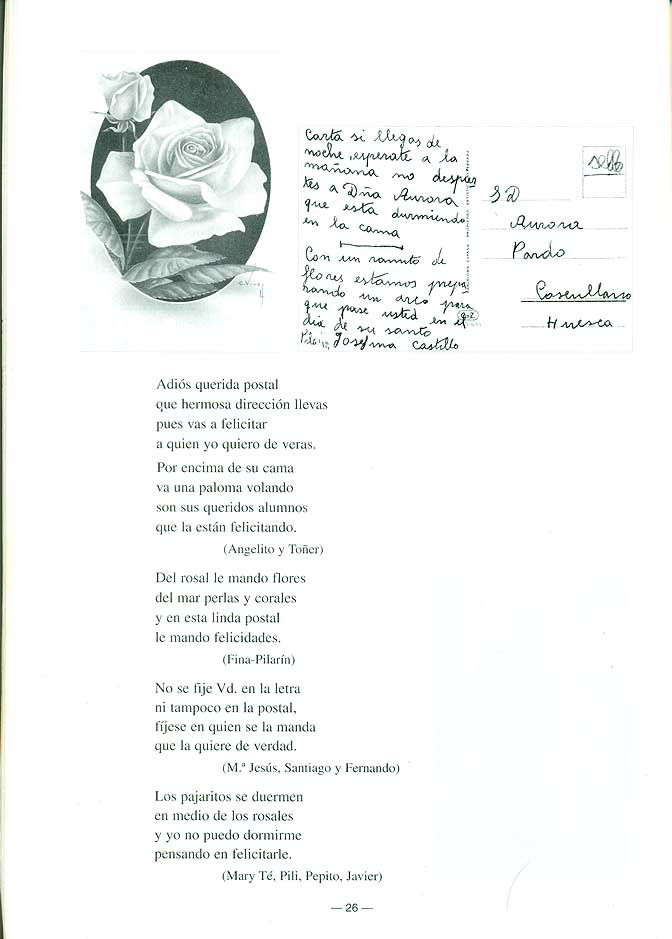 Carta si llegas de
noche, esperate a la
mañana no despier
tes a Dña Aurora
que esta durmiendo
en la cama
Con un ramito de
flores estamos prepa
rando un arco para
que pase usted en el
dia de su santo
Pilarin Josefina Castillo
sello
SD
Aurora
Pardo
Huesca
Adiós querida postal
que hermosa dirección llevas
pues vas a felicitar
a quien yo quiero de veras.
Por encima de su cama
va una paloma volando
son sus queridos alumnos
que la están felicitando.
(Angelito y Toñer)
Del rosal le mando flores
del mar perlas y corales
y en esta linda postal
le mando felicidades.
(Fina-Pilarín)
No se fije Vd. en la letra
ni tampoco en la postal,
fíjese en quien se la manda
que la quiere de verdad.
(M.ª Jesús, Santiago y Fernando)
Los pajaritos se duermen
en medio de los rosales
y yo no puedo dormirme
pensando en felicitarle.
(Mary Té, Pili, Pepito, Javier)
— 26 —